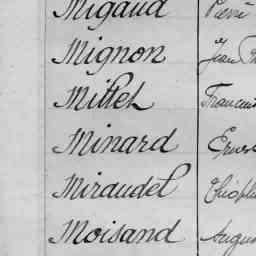 Migaud Pierre
Mignon Jean
Millet
Minard Ernest
Miraudel Théoph
Moisand Augus